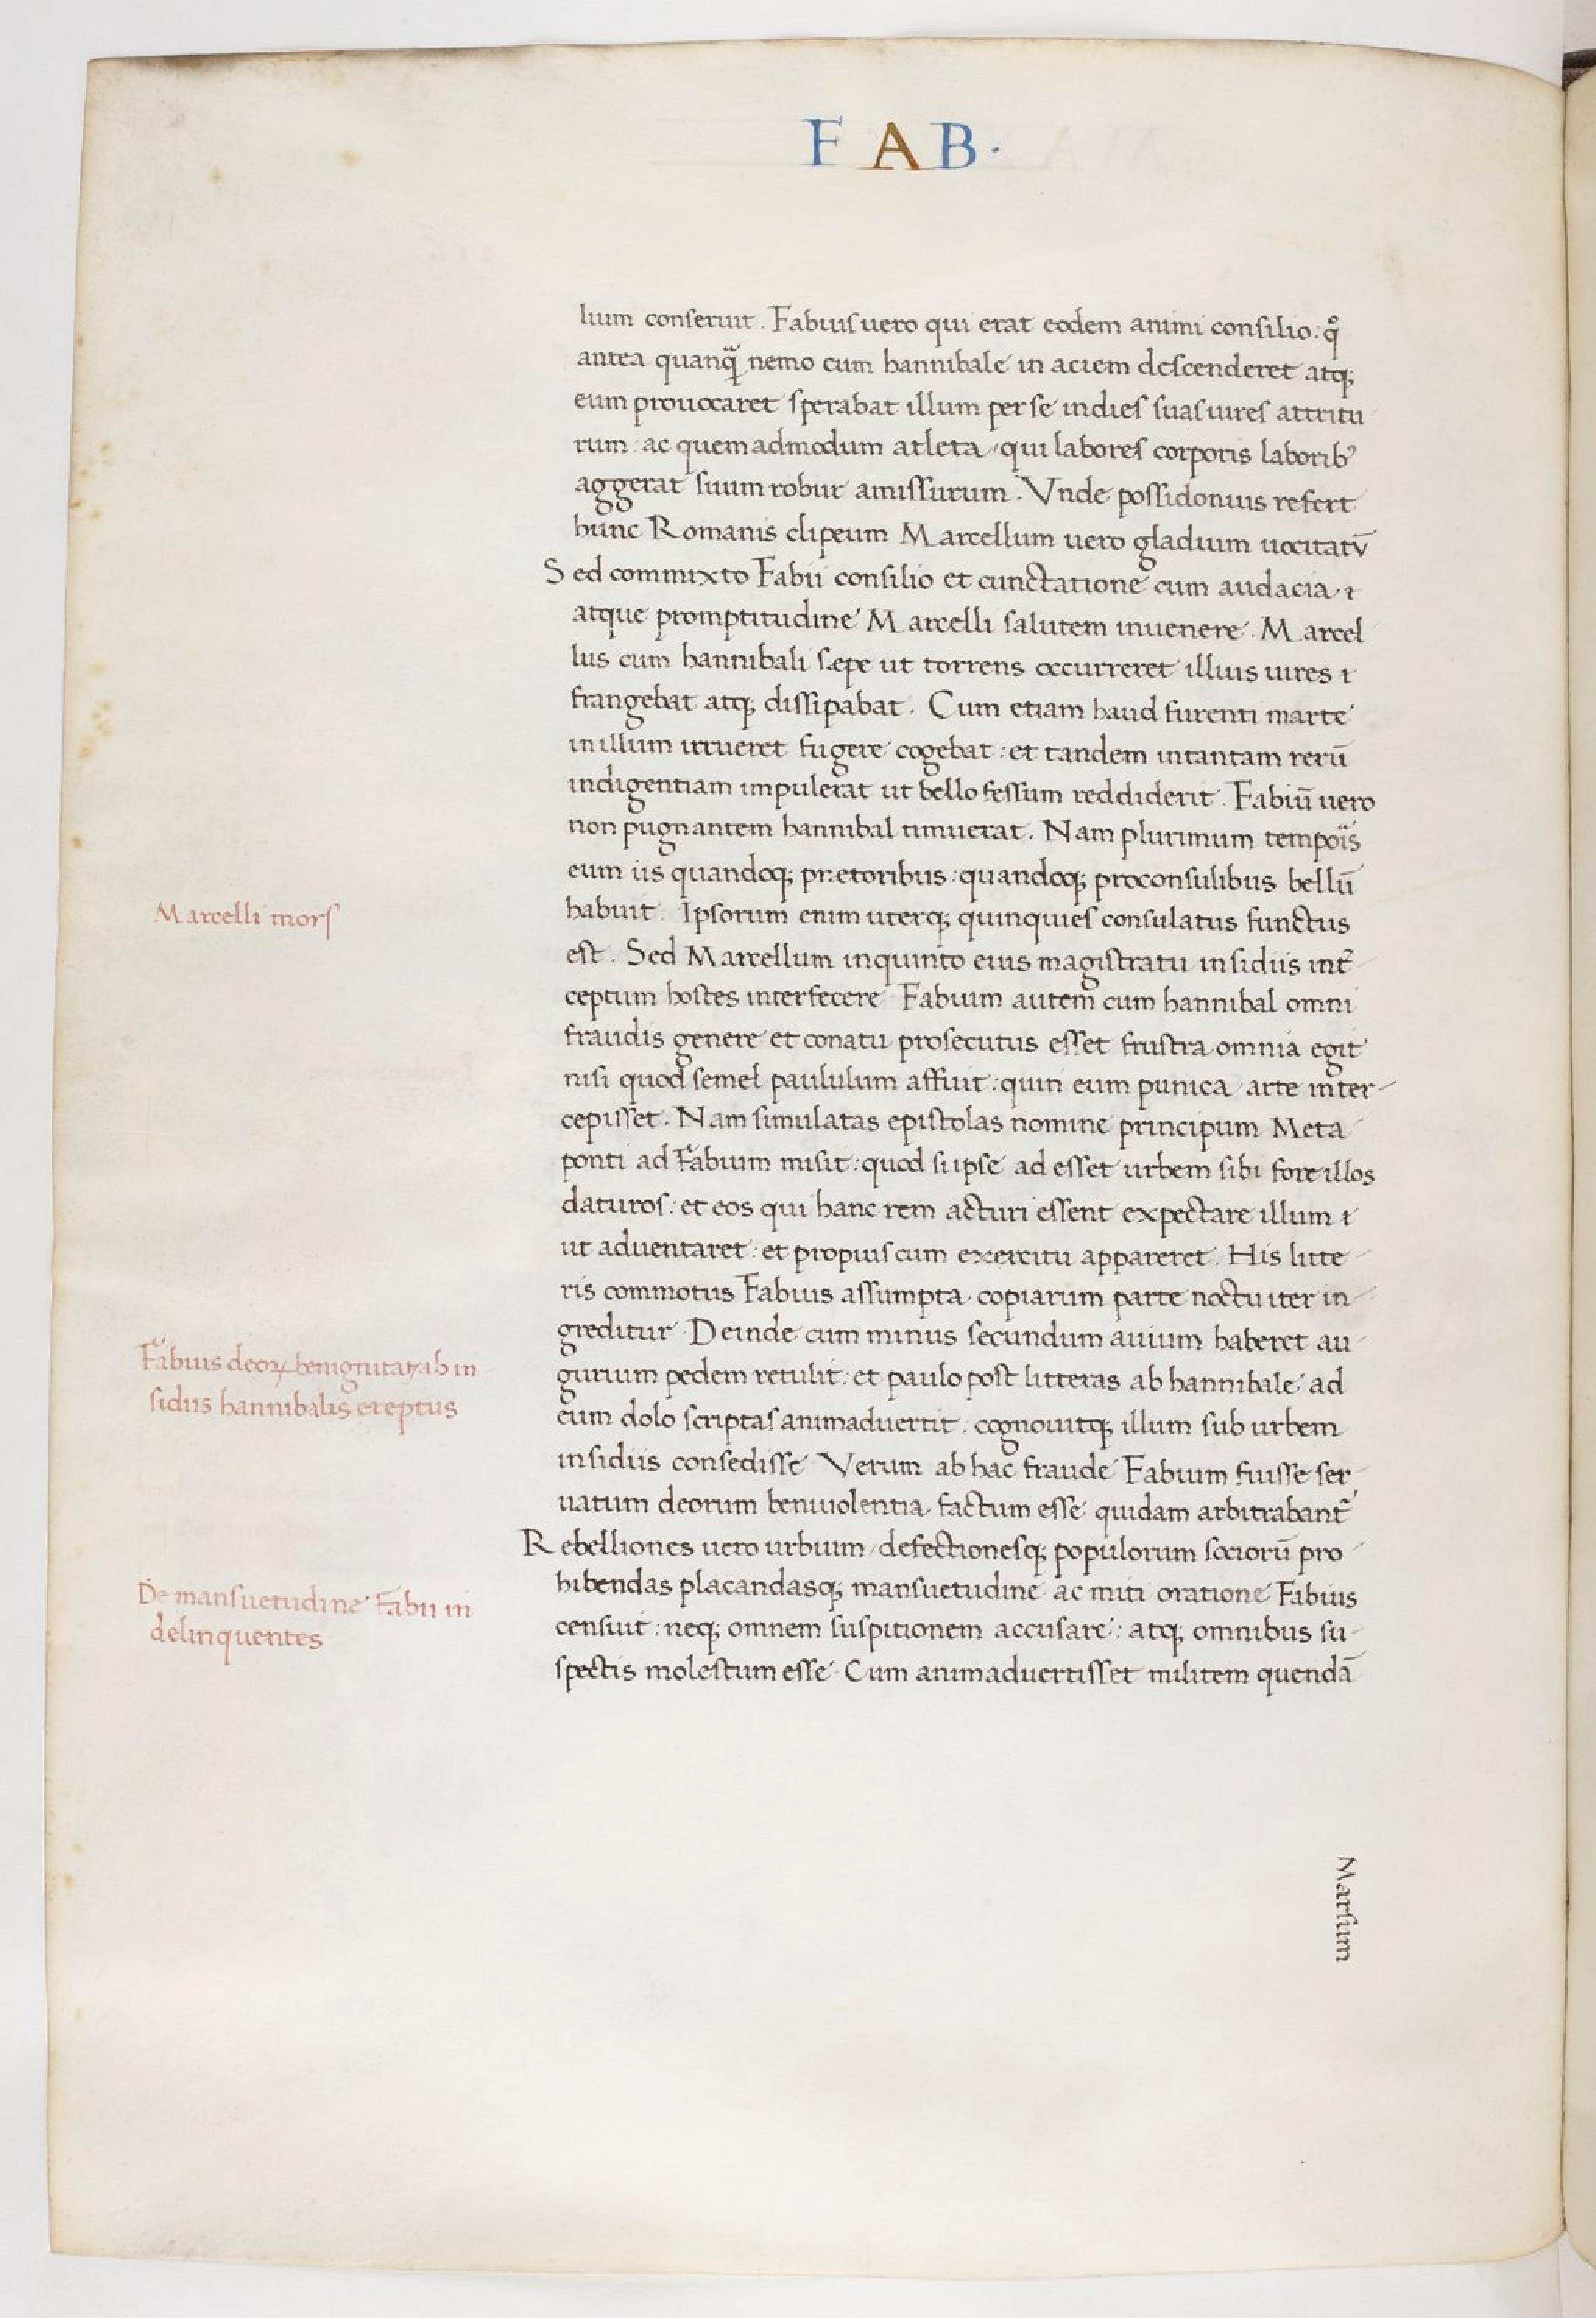 FAB·
lium conseruit. Fabius uero qui erat eodem animi consilio: qͦ
antea quanqᷓ nemo cum hannibale in aciem descenderet atq;
eum prouocaret sperabat illum per se indies suas uires attritu
rum: ac quemadmodum atleta, qui labores corporis laborib᾽
aggerat suum robur amissurum. Vnde possidonius refert
hunc Romanis clipeum Marcellum uero gladium uocitatū
Sed commixto Fabii consilio et cunctatione cum audacia
atque promptitudine Marcelli salutem inuenere. Marcel
lus cum hannibali sæpe ut torrens occurreret illius uires
frangebat atq; dissipabat. Cum etiam haud furenti marte
in illum irrueret fugere cogebat: et tandem in tantam rerū
indigentiam impulerat ut bello fessum reddiderit. Fabiū uero
non pugnantem hannibal timuerat. Nam plurimum tempoıͣs
eum iis quandoq; prætoribus: quandoq; proconsulibus bellū
habuit. Ipsorum enim uterq; quinquies consulatus functus
Marcelli mors
est. Sed Marcellum in quinto eius magistratu insidiis int̃
ceptum hostes interfecere. Fabium autem cum hannibal omni
fraudis genere et conatu prosecutus esset frustra omnia egit
nisi quod semel paululum affuit: quin eum punica arte inter-
cepisset. Nam simulatas epistolas nomine principum Meta
ponti ad Fabium misit: quod si ipse ad esset urbem sibi fore illos
daturos: et eos qui hanc rem acturi essent expectare illum
ut aduentaret: et propius cum exercitu appareret. His litte-
ris commotus Fabius assumpta copiarum parte noctu iter in-
greditur. Deinde cum minus secundum auium haberet au-
Fabius deoꝝ benignitate ab in
sidiis hannibalis ereptus
gurium pedem retulit: et paulo post litteras ab hannibale ad
eum dolo scriptas animaduertit: cognouitq; illum sub urbem
insidiis consedisse. Verum ab hac fraude Fabium fuisse ser-
uatum deorum beniuolentia factum esse quidam arbitrabant̃
Rebelliones uero urbium, defectionesq; populorum sociorū pro-
De mansuetudine Fabii in
delinquentes
hibendas placandasq; mansuetudine ac miti oratione Fabius
censuit: neq; omnem suspitionem accusare: atq; omnibus su-
spectis molestum esse. Cum animaduertisset militem quendā
Marsum